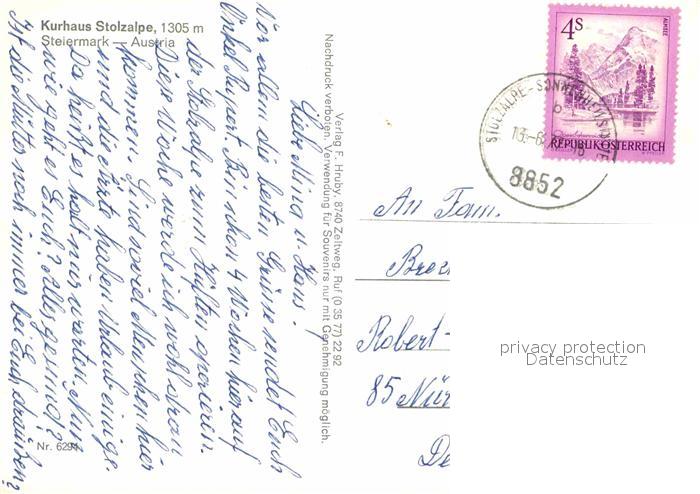 Kurhaus Stolzalpe, 1305 m
Steiermark — Austria
Liebe Mina u. Hans!
Vor allem die besten Grüsse sendet Euch
Onkel Rupert. Bin schon 4 Wochen hier auf
der Stolzalpe zum Hüften operieren.
Diese Woche werde ich wohl dran
kommen. Sind so viel Menschen hier
und die Ärzte haben Urlaub einige.
Da heißt es halt nur warten. Nun
wie geht es Euch? Alles gesund?
Ist die Mutter noch immer bei Euch draußen?
Nr. 6294
Verlag F. Hruby, 8740 Zeltweg, Ruf (0 35 77) 22 92
Nachdruck verboten. Verwendung für Souvenirs nur mit Genehmigung möglich.
4S
ALMSEE
REPUBLIK ÖSTERREICH
STOLZALPE-
8852
An Fam.
Robert-
85 Nür
De
privacy protection
Datenschutz